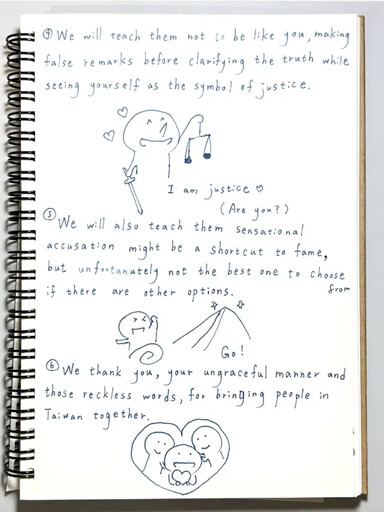 ④ We will teach them not to be like you, making
false remarks before clarifying the truth while
seeing yourself as the symbol of justice.
I am justice ♡
(Are you?)
⑤ We will also teach them sensational
accusation might be a shortcut to fame,
but unfortunately not the best one to choose
from
if there are other options.
Go!
⑥ We thank you, your ungraceful manner and
those reckless words, for bringing people in
Taiwan together.